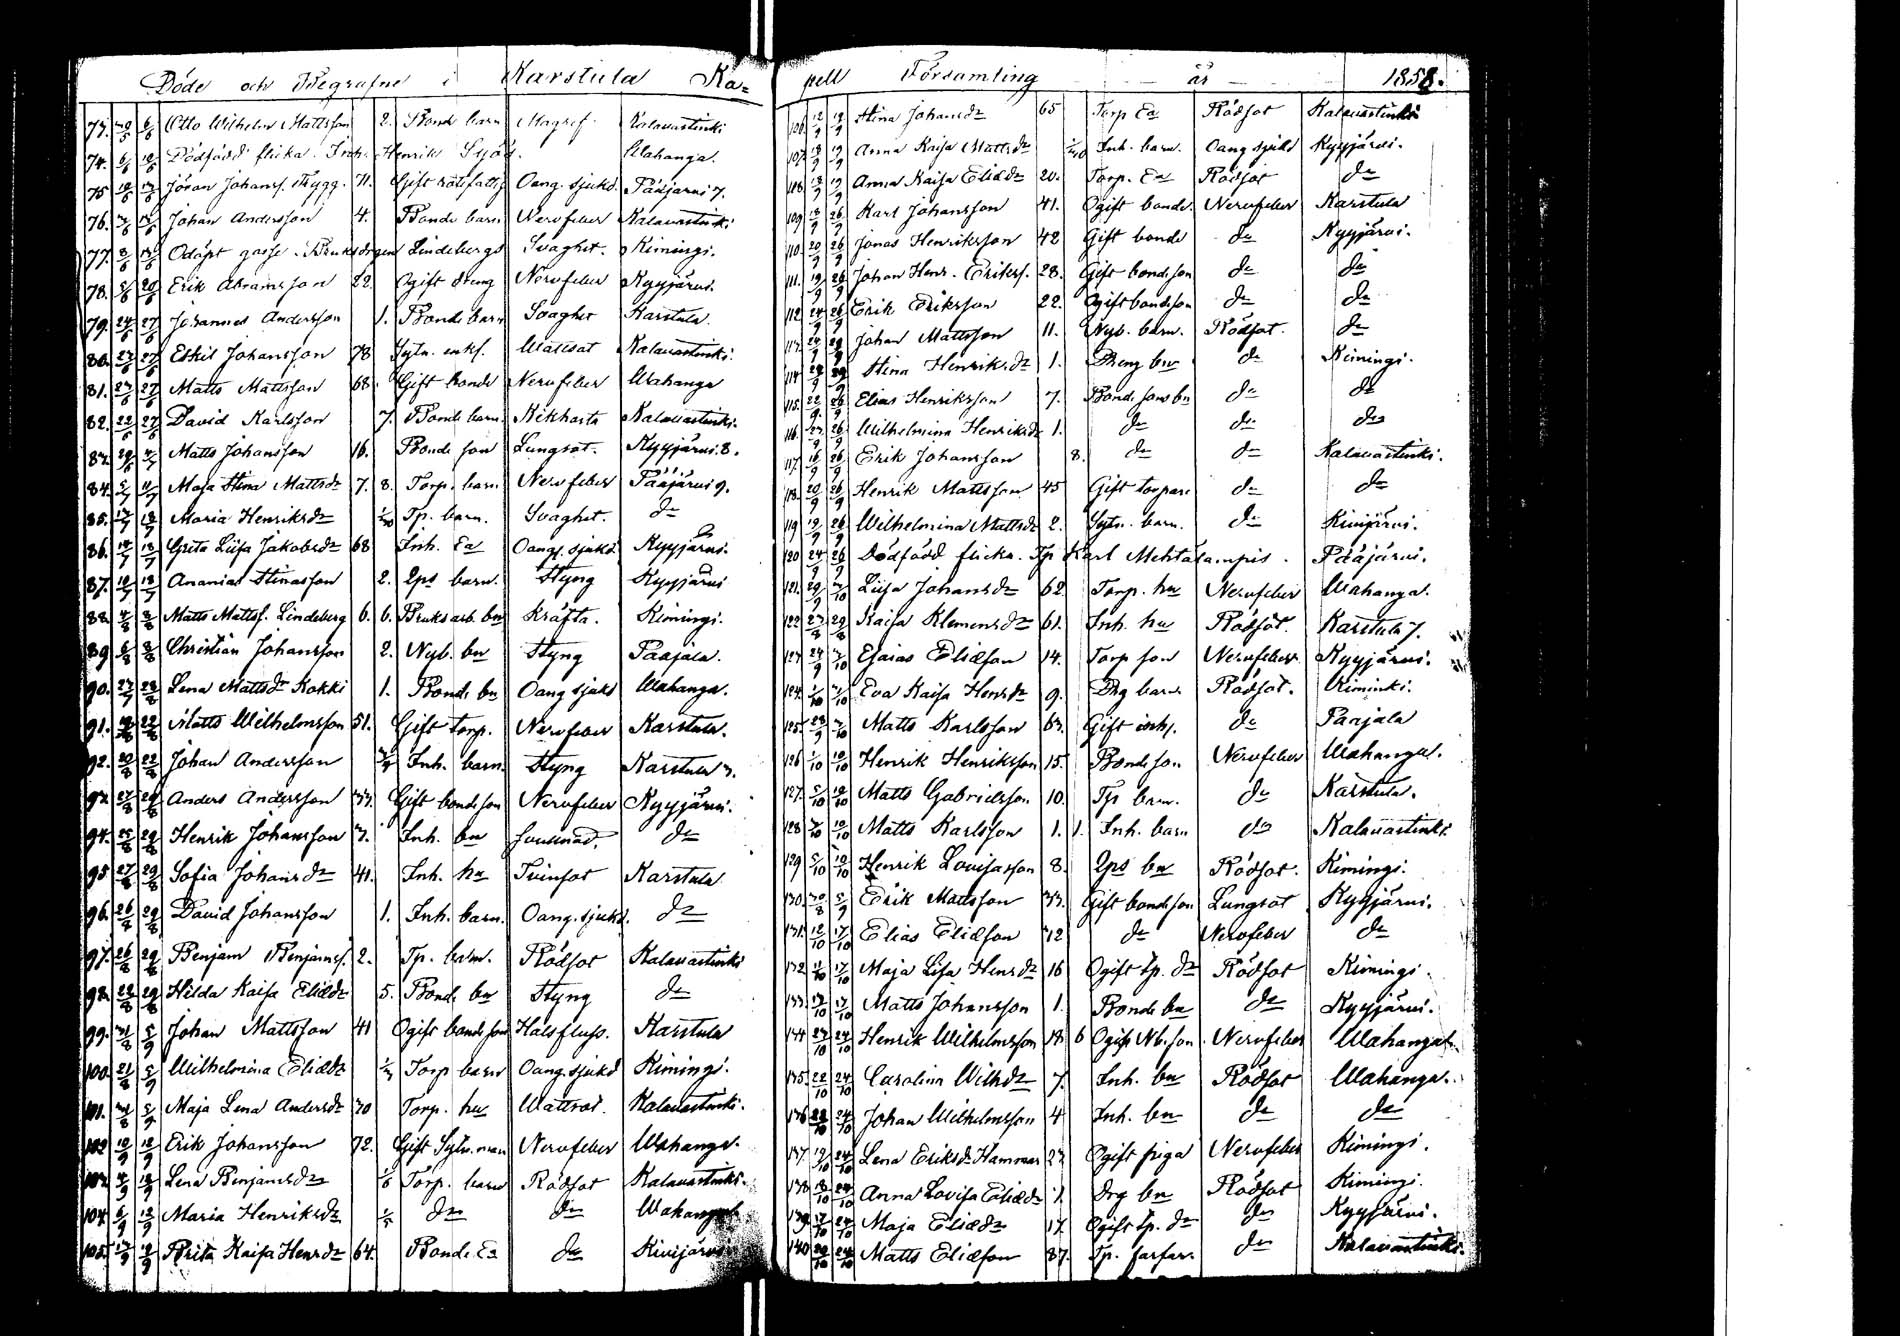 Döde och Begrafne i Karstula Ka=
73. 30/5 6/6 Otto Wilhelm Mattsson 2. Bonde barn Magref. Kalavastinki
74. 6/6 Dödfödd flicka. Inh. Henrik Wahanga.
75 13/6 Jöran Johans. Trygg. 71. Gift rotefattig Oang. sjukd. Pääjärvi 7.
76. 13/6 Johan Andersson 4. Bonde barn Nervfeber Kalavastinki
77. 8/6 13/6 Odöpt gosse. Bruksdrgen Lindebergs Svaghet. Kimingi.
78. 20/6 Erik Abramsson 22. Ogift dreng Nervfeber Kyyjärvi.
79. 24/6 27/6 Johannes Andersson 1. Bonde barn Svaghet Karstula.
80. 23/6 27/6 Eskil Johansson 78 Sytn. enkl. Wattsot Kalavastinki.
81. 23/6 27/6 Matts Mattsson 68. Gift bonde Nervfeber Wahanga
82. 22/6 27/6 David Karlsson 7. Bonde barn. Kikhosta Kalavastinki.
83. 29/6 4/7 Matts Johansson 16. Bonde son Lungsot. Kyyjärvi 8.
84. 5/7 11/7 Maja Stina Mattsdr 7. 8. Torp. barn Nervfeber Pääjärvi 9.
85. 18/7 Maria Henriksdr Tp. barn. Svaghet. do
86. 18/7 Greta Lisa Jakobsdr 68 Inh. Ea Oang. sjukd. Kyyjärvi.
87. 18/7 Ananias Stinasson 2. Qps barn. Styng Kyyjärvi
88. 4/8 8/8 Matts Mattss. Lindeberg 6. 6. Bruksarb. bn Kräfta. Kimingi.
89 6/8 8/8 Christian Johansson 2. Nyb. bn Styng Paajala.
90. Lena Mattsdr Kokki 1. Bonde bn Oang sjukd Wahanga.
91. 22/8 Matts Wilhelmsson 51. Gift torp. Nervfeber Karstula.
92. 20/8 22/8 Johan Andersson Inh. barn. Styng Karstula 3.
93. 27/8 29/8 Anders Andersson 33. Gift bondeson Nervfeber Kyyjärvi.
94. 25/8 29/8 Henrik Johansson 3. Inh. bn do
95 27/8 29/8 Sofia Johansdr 41. Inh. hu Tvinsot Karstula
96. 26/8 29/8 David Johansson 1. Inh. barn. Oang. sjukd. do
97. 26/8 29/8 Benjam Benjamss. 2. Tp. barn. Rödsot Kalavastinki
98. 29/8 Hilda Kaisa Eliædr 5. Bonde bn Styng do
99. 31/8 5/9 Johan Mattsson 41 Ogift bondeson Halsfluss. Karstula
100. 31/8 5/9 Wilhelmina Eliædr Torp barn Oang. sjukd Kimingi.
101. 31/8 5/9 Maja Lena Andersdr 70 Torp. hu Wattsot. Kalavastinki.
102 12/9 Erik Johansson 72. Gift Sytn. man Nervfeber Wahanga.
103. 12/9 Lena Benjamsdr 1/6 Torp. barn Rödsot Kalavastinki.
104. 6/9 12/9 Maria Henriksdr 1/5 do do Wahanga
105. 12/9 Brita Kaisa Henrdr 64. Bonde Ea do Kivijärvi
pell Församling år 1858.
106. 12/9 19/9 Stina Johansdr 65 Torp Ea Rödsot Kalavastinki
107. 19/9 Anna Kaisa Mattsdr Inh. barn. Oang sjukd Kyyjärvi.
108. 19/9 Anna Kaisa Eliædr 20. Torp. Ea Rödsot do
109 26/9 Karl Johansson 41. Ogift bonde. Nervfeber Karstula
110. 20/9 26/9 Jonas Henriksson 42 Gift bonde do Kyyjärvi.
111. 19/9 26/9 Johan Henr. Erikss. 28. Gift bondeson do do
112. 24/9 26/9 Erik Eriksson 22. Ogift bondeson do do
113. Johan Mattsson 11. Nyb. barn. Rödsot. do
114 Stina Henriksdr 1. Dreng bn do Kimingi.
115. 22/9 26/9 Elias Henriksson 7. Bonde sons bn do do
116. 23/9 26/9 Wilhelmina Henriksdr 1. do do do
117. 16/9 26/9 Erik Johansson 8. do do Kalavastinki.
118. 20/9 26/9 Henrik Mattsson 45 Gift torpare do do
119 19/9 26/9 Wilhelmina Mattsdr 2. Sytn. barn. do Kivijärvi.
120 24/9 26/9 Dödfödd flicka. Tp Karl Mehtälampis. Pääjärvi.
121. 29/9 3/10 Lisa Johansdr 62 Torp. hu Nervfeber Wahanga.
122 Kaisa Klemensdr 61. Inh. hu Rödsot. Karstula 7.
123 Esaias Eliæson 14. Torp son Nervfeber Kyyjärvi.
124. 1/10 3/10 Eva Kaisa Henrdr 9. Drg barn Rödsot. Kiminki.
125. 3/10 Matts Karlsson 63. Gift inhs. do Paajala
126 1/10 10/10 Henrik Henriksson 15. Bonde son Nervfeber Wahanga.
127. 5/10 10/10 Matts Gabrielsson 10. Tp barn. do Karstula.
128 10/10 Matts Karlsson 1. 1. Inh. barn do Kalavastinki
129 5/10 10/10 Henrik Lovisasson 8. Qps bn Rödsot. Kimingi.
130. 30/8 5/9 Erik Mattsson 33. Gift bondeson Lungsot Kyyjärvi.
131. 12/10 17/10 Elias Eliæson 12 do Nervfeber do
132 11/10 17/10 Maja Lisa Henrsdr 16 Ogift tp. dr Rödsot Kimingi.
133 13/10 17/10 Matts Johansson 1. Bonde bn do Kyyjärvi.
134 23/10 24/10 Henrik Wilhelmsson 18 6 Ogift Nb. son. Nervfeber Wahanga
135. 22/10 24/10 Carolina Wilhdr 7. Inh. bn Rödsot Wahanga.
136 22/10 24/10 Johan Wilhelmsson 4 Inh. bn do do
137. 19/10 24/10 Lena Eriksdr Hammar 23 Ogift piga Nervfeber Kimingi.
138 18/10 24/10 Anna Lovisa Eliædr 1. Drg bn Rödsot Kimingi.
139 17/10 24/10 Maja Eliædr 17. Ogift tp. dr do Kyyjärvi.
140 20/10 24/10 Matts Eliæson 87. Tp. farfar. do Kalavastinki.